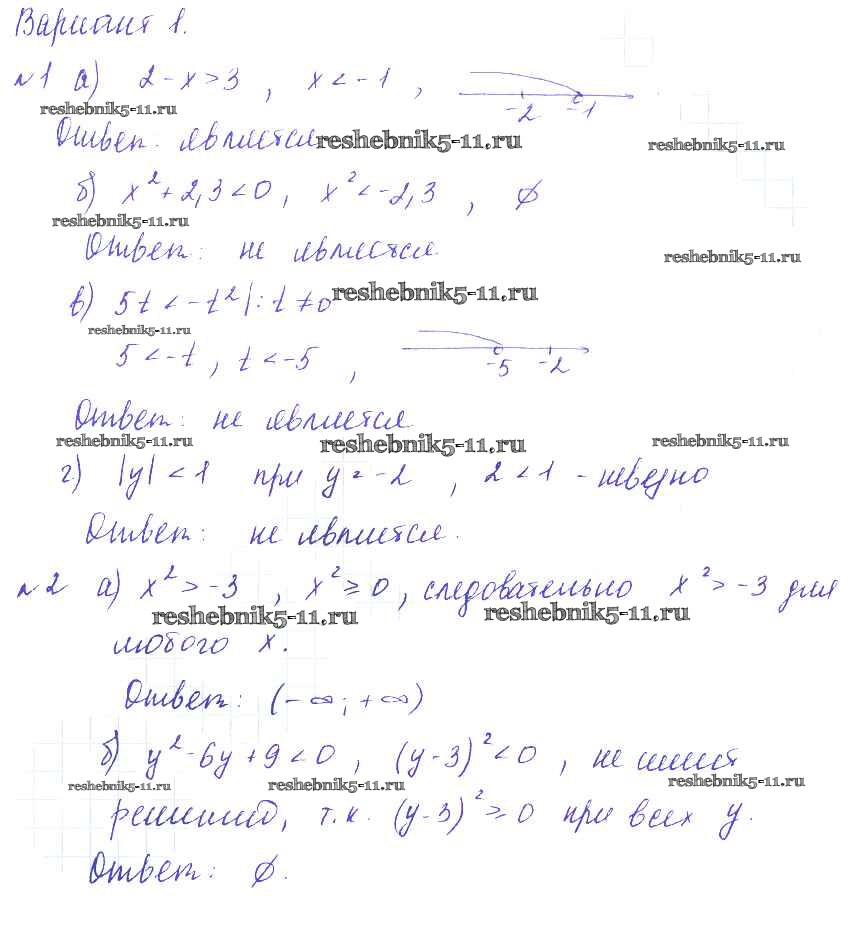 Вариант 1.
№1 а) 2-x>3, x<-1, -2 -1
reshebnik5-11.ru
Ответ: является reshebnik5-11.ru reshebnik5-11.ru
б) x²+2,3<0, x²<-2,3, ∅
reshebnik5-11.ru
Ответ: не является. reshebnik5-11.ru
в) 5t<-t²|:t≠0 reshebnik5-11.ru
reshebnik5-11.ru
5<-t, t<-5, -5 -2
Ответ: не является
reshebnik5-11.ru reshebnik5-11.ru reshebnik5-11.ru
г) |y|<1 при y=-2, 2<1 - неверно
Ответ: не является.
№2 а) x²>-3, x²≥0, следовательно x²>-3 для
reshebnik5-11.ru reshebnik5-11.ru
любого x.
Ответ: (-∞; +∞)
б) y²-6y+9<0, (y-3)²<0, не имеет
reshebnik5-11.ru reshebnik5-11.ru reshebnik5-11.ru
решений, т.к. (y-3)²≥0 при всех y.
Ответ: ∅.